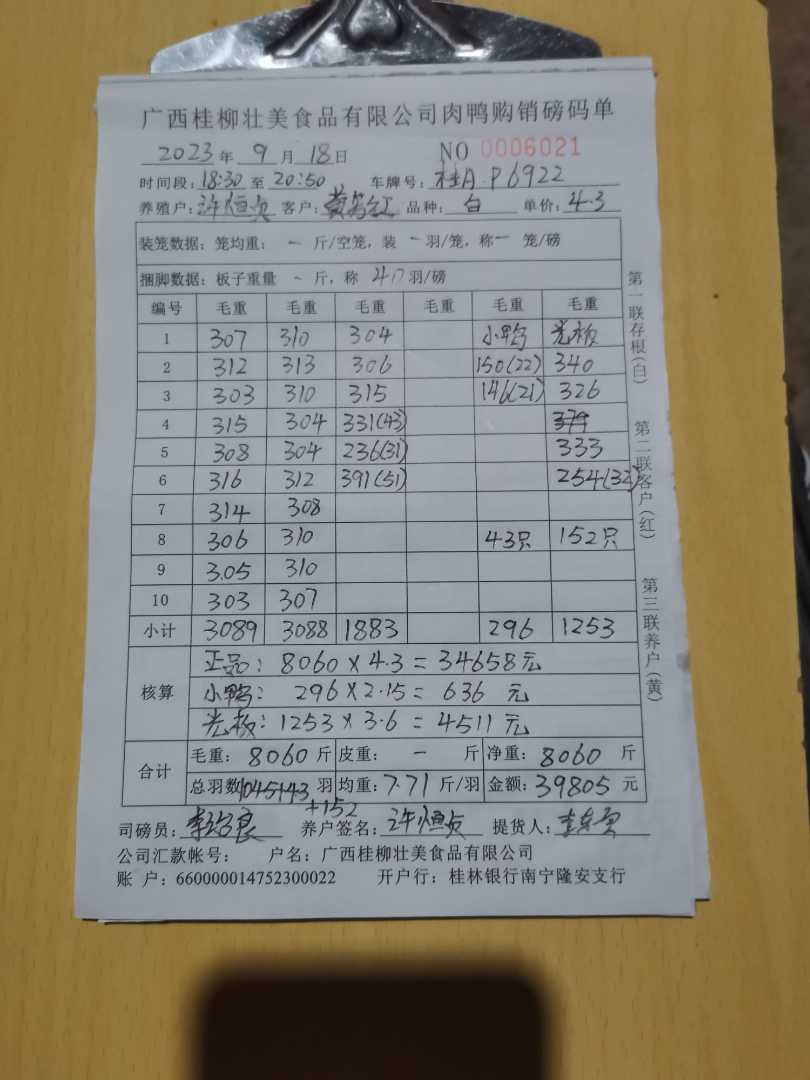 广西桂柳壮美食品有限公司肉鸭购销磅码单
2023年 9 月 18日 NO 0006021
时间段: 18:30 至 20:50 车牌号: 桂A·P6922
养殖户: 许恒贞 客户: 品种: 白 单价: 4.3
装笼数据: 笼均重: 一 斤/空笼, 装 一 羽/笼, 称 一 笼/磅
捆脚数据: 板子重量 - 斤, 称 40 羽/磅
编号 毛重 毛重 毛重 毛重 毛重 毛重
1 307 310 304 小鸭 光板
2 312 313 306 150(22) 340
3 303 310 315 146(21) 326
4 315 304 331(43) 379
5 308 304 236(31) 333
6 316 312 391(51) 254(32)
7 314 308
8 306 310 43只 152只
9 3.05 310
10 303 307
小计 3089 3088 1883 296 1253
核算
正品: 8060×4.3=34658元
小鸭: 296×2.15= 636 元
光板: 1253×3.6=4511元
合计
毛重: 8060斤 皮重: 一 斤 净重: 8060 斤
总羽数1045+43 羽 均重: 7.71 斤/羽 金额: 39805 元
+152
司磅员: 养户签名: 许恒贞 提货人:
公司汇款帐号: 户名: 广西桂柳壮美食品有限公司
账 户: 660000014752300022 开户行: 桂林银行南宁隆安支行
第一联存根(白)
第二联客户(红)
第三联养户(黄)